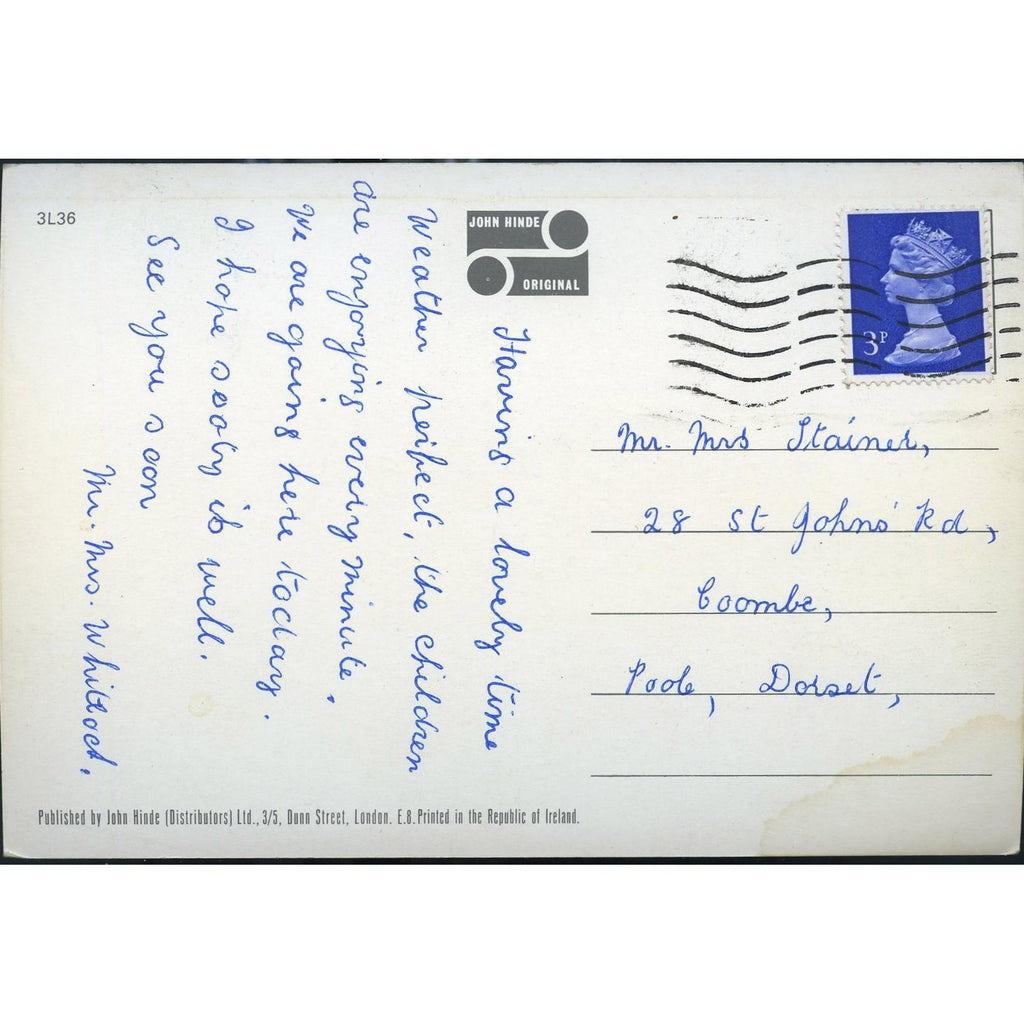 3L36
JOHN HINDE
ORIGINAL
Having a lovely time
Weather perfect, the children
are enjoying every minute.
We are going here today.
I hope sooty is well.
See you soon
Mr. Mrs. Whitlock.
3P
Mr. Mrs Stainer,
28 St Johns' Rd,
Coombe,
Poole, Dorset,
Published by John Hinde (Distributors) Ltd., 3/5, Dunn Street, London. E.8. Printed in the Republic of Ireland.